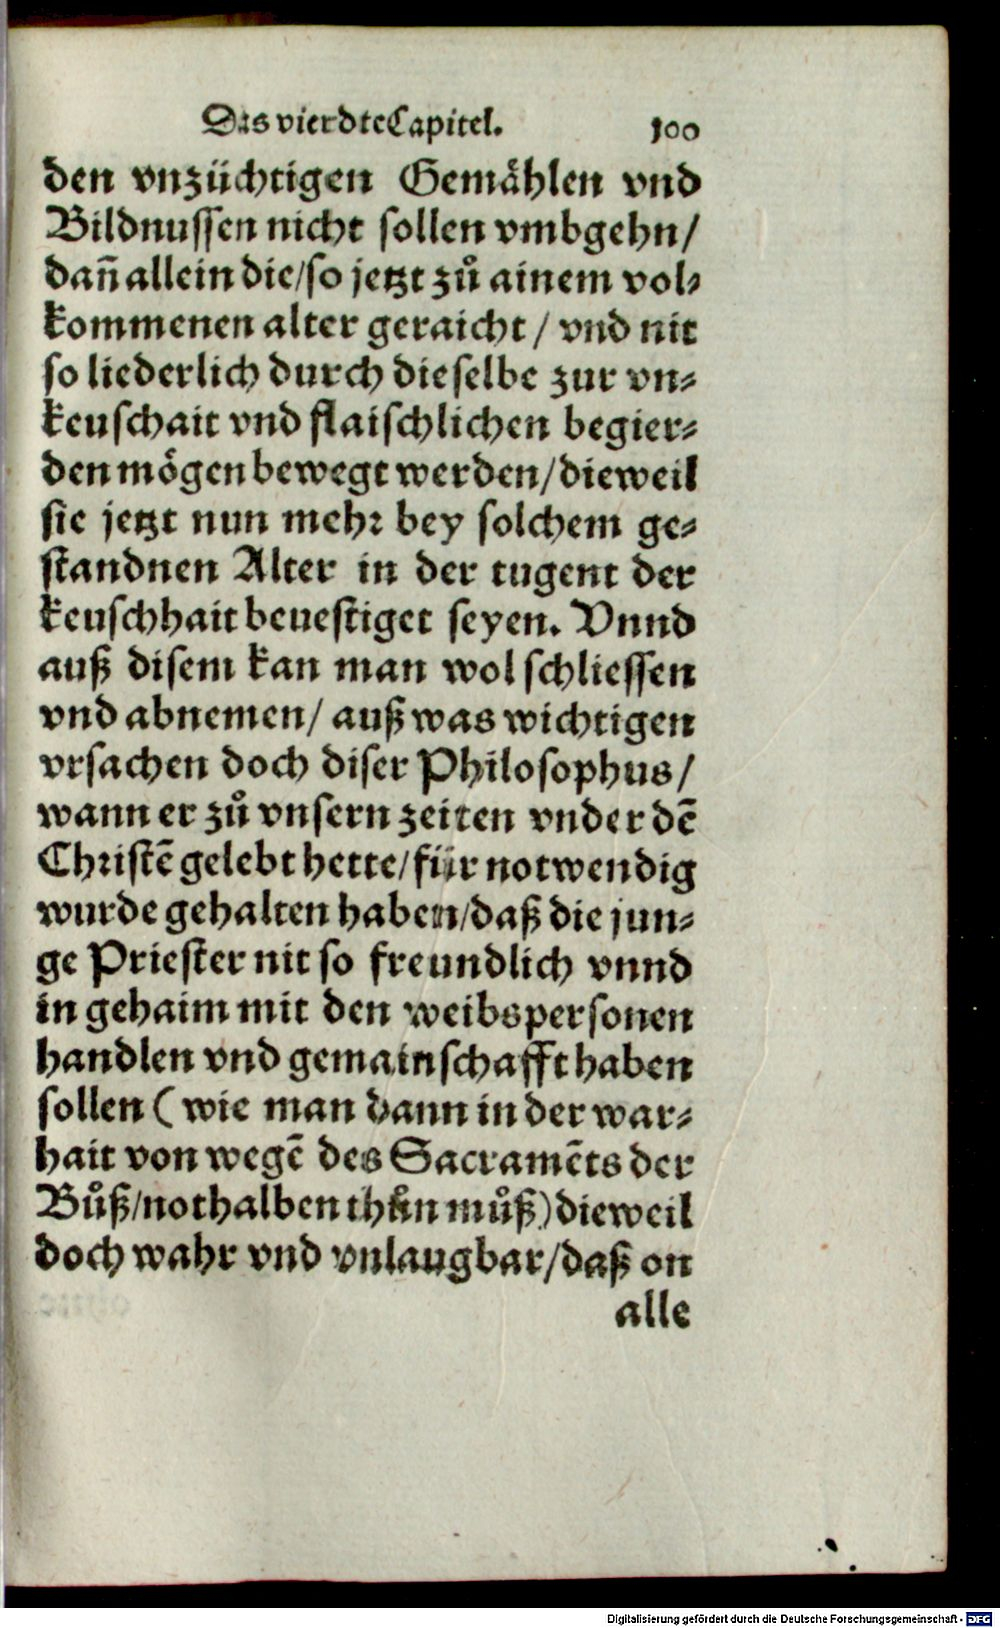 Das vierdte Capitel. 100
den vnzüchtigen Gemählen vnd
Bildnussen nicht sollen vmbgehn/
dañ allein die/so jetzt zů ainem vol⸗
kommenen alter geraicht / vnd nit
so liederlich durch dieselbe zur vn⸗
keuschait vnd flaischlichen begier⸗
den mögen bewegt werden/dieweil
sie jetzt nun mehr bey solchem ge⸗
standnen Alter in der tugent der
keuschhait beuestiget seyen. Vnnd
auß disem kan man wol schliessen
vnd abnemen/ auß was wichtigen
vrsachen doch diser Philosophus/
wann er zů vnsern zeiten vnder dē
Christē gelebt hette/für notwendig
wurde gehalten haben/daß die jun⸗
ge Priester nit so freundlich vnnd
in gehaim mit den weibspersonen
handlen vnd gemainschafft haben
sollen ( wie man dann in der war⸗
hait von wegē des Sacramēts der
Bůß/nothalben thůn můß) dieweil
doch wahr vnd vnlaugbar/daß on
alle
Digitalisierung gefördert durch die Deutsche Forschungsgemeinschaft - DFG